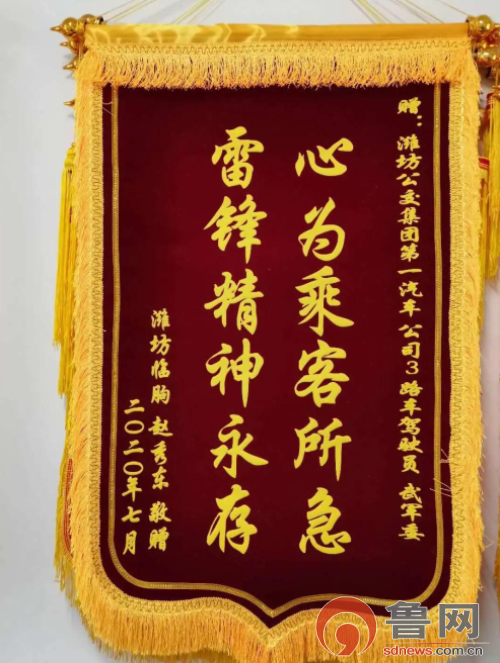 赠：潍坊公交集团第一汽车公司3路车驾驶员 武军委
心为乘客所急
雷锋精神永存
潍坊临朐 赵秀东 敬赠
二〇二〇年七月
鲁网
sdnews.com.cn